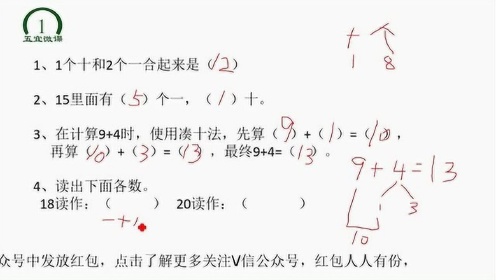 1
五宜微课
十 个
1 8
1、1个十和2个一合起来是（12）
2、15里面有（5）个一，（1）十。
3、在计算9+4时，使用凑十法，先算（9）+（1）=（10），
再算（10）+（3）=（13），最终9+4=（13）。
9+4=13
1 3
10
4、读出下面各数。
18读作：（ ） 20读作：（ ）
一十
众号中发放红包，点击了解更多关注V信公众号，红包人人有份，